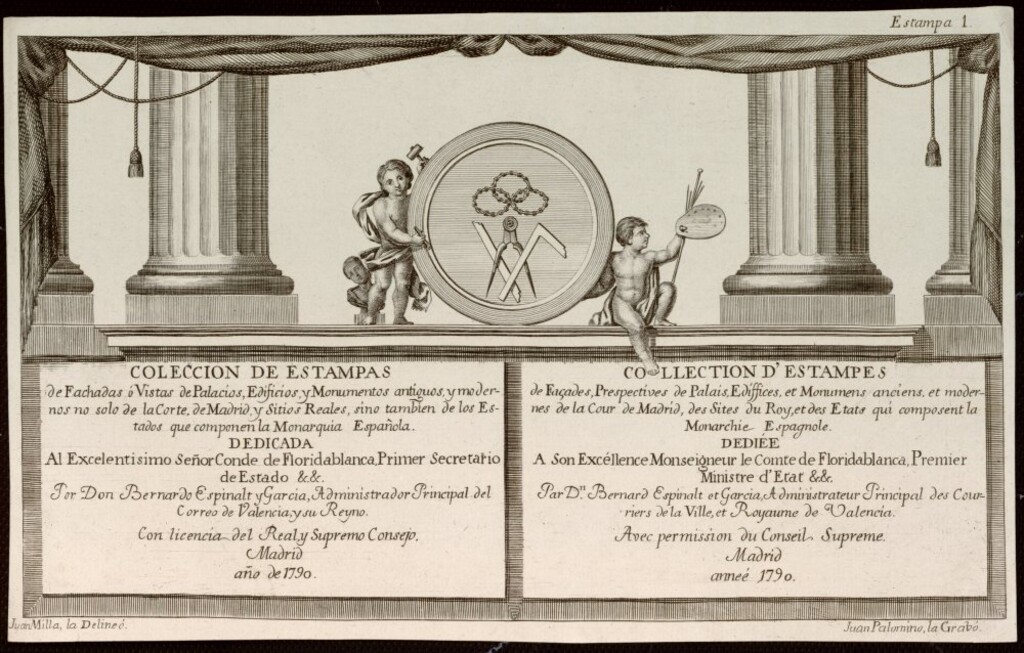 Estampa 1.
COLECCION DE ESTAMPAS
de Fachadas ó Vistas de Palacios, Edificios, y Monumentos antiguos, y moder-
nos no solo de la Corte, de Madrid, y Sitios Reales, sino tambien de los Es-
tados que componen la Monarquia Española.
DEDICADA
Al Excelentisimo Señor Conde de Floridablanca, Primer Secretario
de Estado &c&c.
Por Don Bernardo Espinalt y Garcia, Administrador Principal del
Correo de Valencia, y su Reyno.
Con licencia del Real, y Supremo Consejo.
Madrid
año de 1790.
COLLECTION D'ESTAMPES
de Façades, Prespectives de Palais, Ediffices, et Monumens anciens, et moder-
nes de la Cour de Madrid, des Sites du Roy, et des Etats qui composent la
Monarchie Espagnole.
DEDIÉE
A Son Excéllence Monseigneur le Comte de Floridablanca, Premier
Ministre d'Etat &c&c.
Par Dn. Bernard Espinalt et Garcia, Administrateur Principal des Cour-
riers de la Ville, et Royaume de Valencia.
Avec permission du Conseil Supreme.
Madrid
anneé 1790.
Juan Milla, la Delineó.
Juan Palomino, la Grabó.